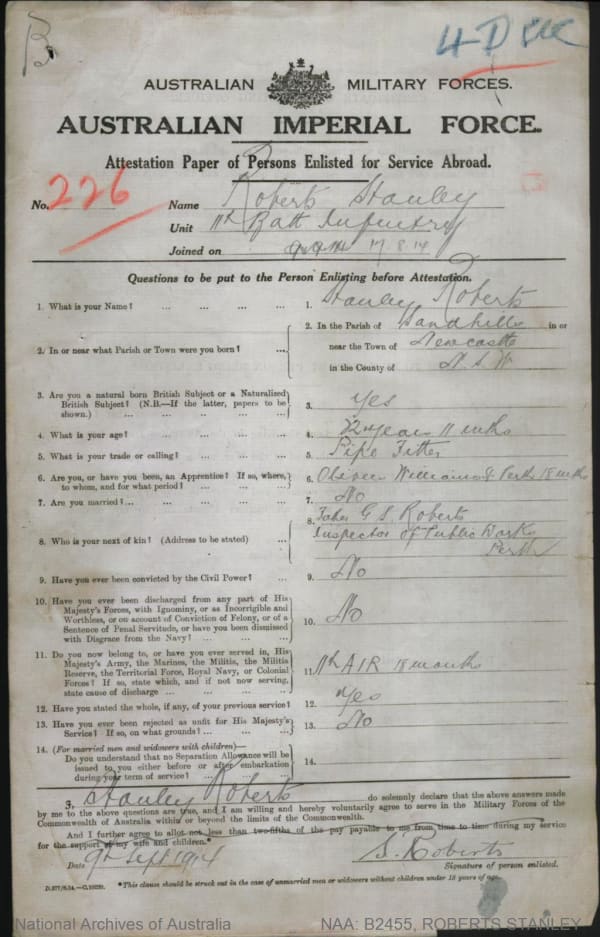 B
AUSTRALIAN MILITARY FORCES.
AUSTRALIAN IMPERIAL FORCE.
Attestation Paper of Persons Enlisted for Service Abroad.
No. 226
Name Roberts Stanley
Unit 11th Batt Infantry
Joined on 17.8.14
Questions to be put to the Person Enlisting before Attestation.
1. What is your Name? ... ... ... ... 1. Stanley Roberts
2. In or near what Parish or Town were you born? ... 2. In the Parish of Sandhills in or
near the Town of Newcastle
in the County of N.S.W
3. Are you a natural born British Subject or a Naturalized
British Subject? (N.B.—If the latter, papers to be
shown.) ... ... ... ... 3. Yes
4. What is your age? ... ... ... ... 4. 22 years 11 mths
5. What is your trade or calling? ... ... ... 5. Pipe Fitter
6. Are you, or have you been, an Apprentice? If so, where,
to whom, and for what period? ... ... ... 6. Williams Perth 18 mths
7. Are you married? ... ... ... ... 7. No
8. Who is your next of kin? (Address to be stated) ... 8. Father G S. Roberts
Inspector of Public Works
Perth
9. Have you ever been convicted by the Civil Power? ... 9. No
10. Have you ever been discharged from any part of His
Majesty's Forces, with Ignominy, or as Incorrigible and
Worthless, or on account of Conviction of Felony, or of a
Sentence of Penal Servitude, or have you been dismissed
with Disgrace from the Navy? ... ... ... 10. No
11. Do you now belong to, or have you ever served in, His
Majesty's Army, the Marines, the Militia, the Militia
Reserve, the Territorial Force, Royal Navy, or Colonial
Forces? If so, state which, and if not now serving,
state cause of discharge ... ... ... ... 11. 11th AIR 18 months
12. Have you stated the whole, if any, of your previous service? 12. Yes
13. Have you ever been rejected as unfit for His Majesty's
Service? If so, on what grounds? ... ... ... 13. No
14. (For married men and widowers with children)—
Do you understand that no Separation Allowance will be
issued to you either before or after embarkation
during your term of service? ... ... ... 14.
I, Stanley Roberts do solemnly declare that the above answers made
by me to the above questions are true, and I am willing and hereby voluntarily agree to serve in the Military Forces of the
Commonwealth of Australia within or beyond the limits of the Commonwealth.
And I further agree to allot not less than two-fifths of the pay payable to me from time to time during my service
for the support of my wife and children.*
Date 9th Sept 1914 S. Roberts
Signature of person enlisted.
*This clause should be struck out in the case of unmarried men or widowers without children under 18 years of age.
National Archives of Australia NAA: B2455, ROBERTS STANLEY